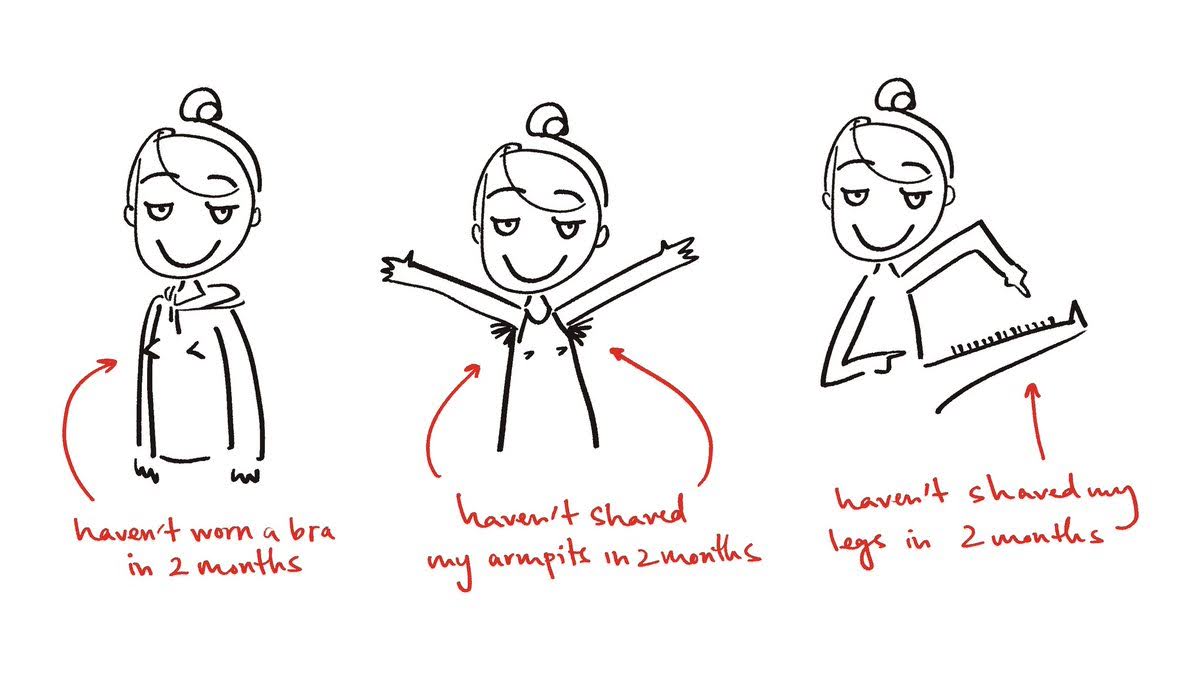 haven't worn a bra
in 2 months
haven't shaved
my armpits in 2 months
haven't shaved my
legs in 2 months